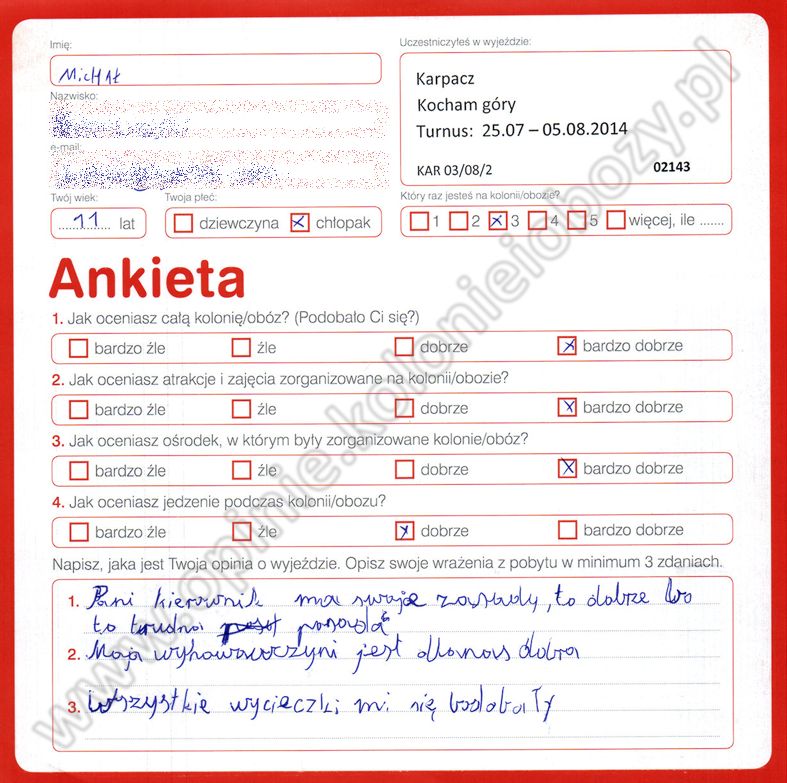 Imię:
MICHAŁ
Nazwisko:
e-mail:
Twój wiek:
11 lat
Twoja płeć:
dziewczyna chłopak
Uczestniczyłeś w wyjeździe:
Karpacz
Kocham góry
Turnus: 25.07 – 05.08.2014
KAR 03/08/2 02143
Który raz jesteś na kolonii/obozie?
1 2 3 4 5 więcej, ile .......
Ankieta
1. Jak oceniasz całą kolonię/obóz? (Podobało Ci się?)
bardzo źle źle dobrze bardzo dobrze
2. Jak oceniasz atrakcje i zajęcia zorganizowane na kolonii/obozie?
bardzo źle źle dobrze bardzo dobrze
3. Jak oceniasz ośrodek, w którym były zorganizowane kolonie/obóz?
bardzo źle źle dobrze bardzo dobrze
4. Jak oceniasz jedzenie podczas kolonii/obozu?
bardzo źle źle dobrze bardzo dobrze
Napisz, jaka jest Twoja opinia o wyjeździe. Opisz swoje wrażenia z pobytu w minimum 3 zdaniach.
1. Pani kierownik ma swoje zasady, to dobrze bo
to trudna
2. Moja wyhowawczyni jest dlanas dobra
3. Wszystkie wycieczki mi się bodobały
www.opinie.kolonieiobozy.pl